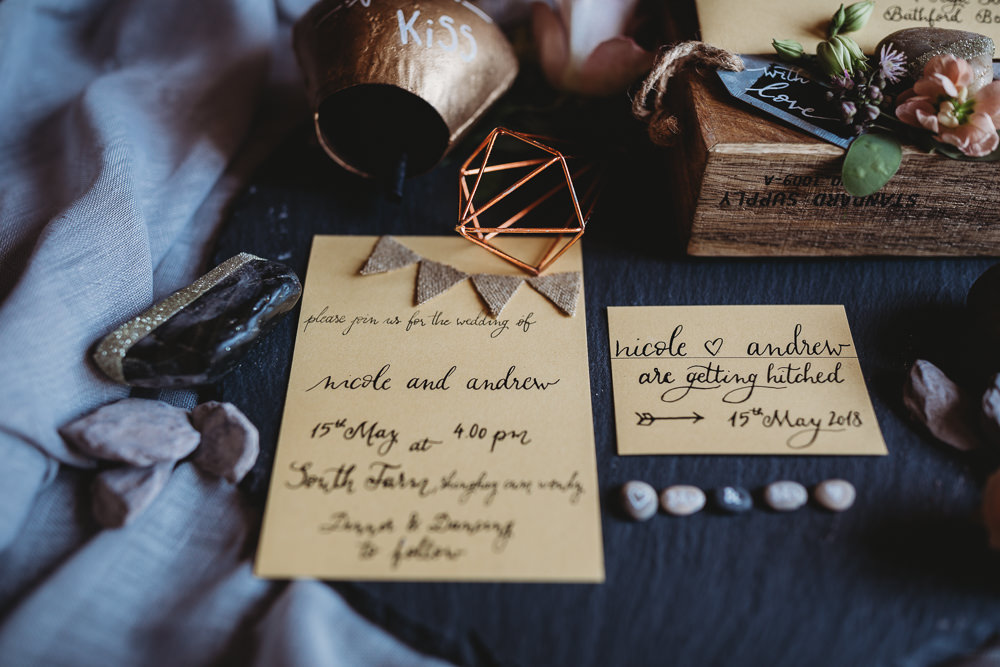 Kiss
Bathford
with
love
STANDARD SUPPLY
please join us for the wedding of
nicole and andrew
15th May at 4.00 pm
South Farm
Dinner & Dancing
to follow
nicole ♡ andrew
are getting hitched
15th May 2018